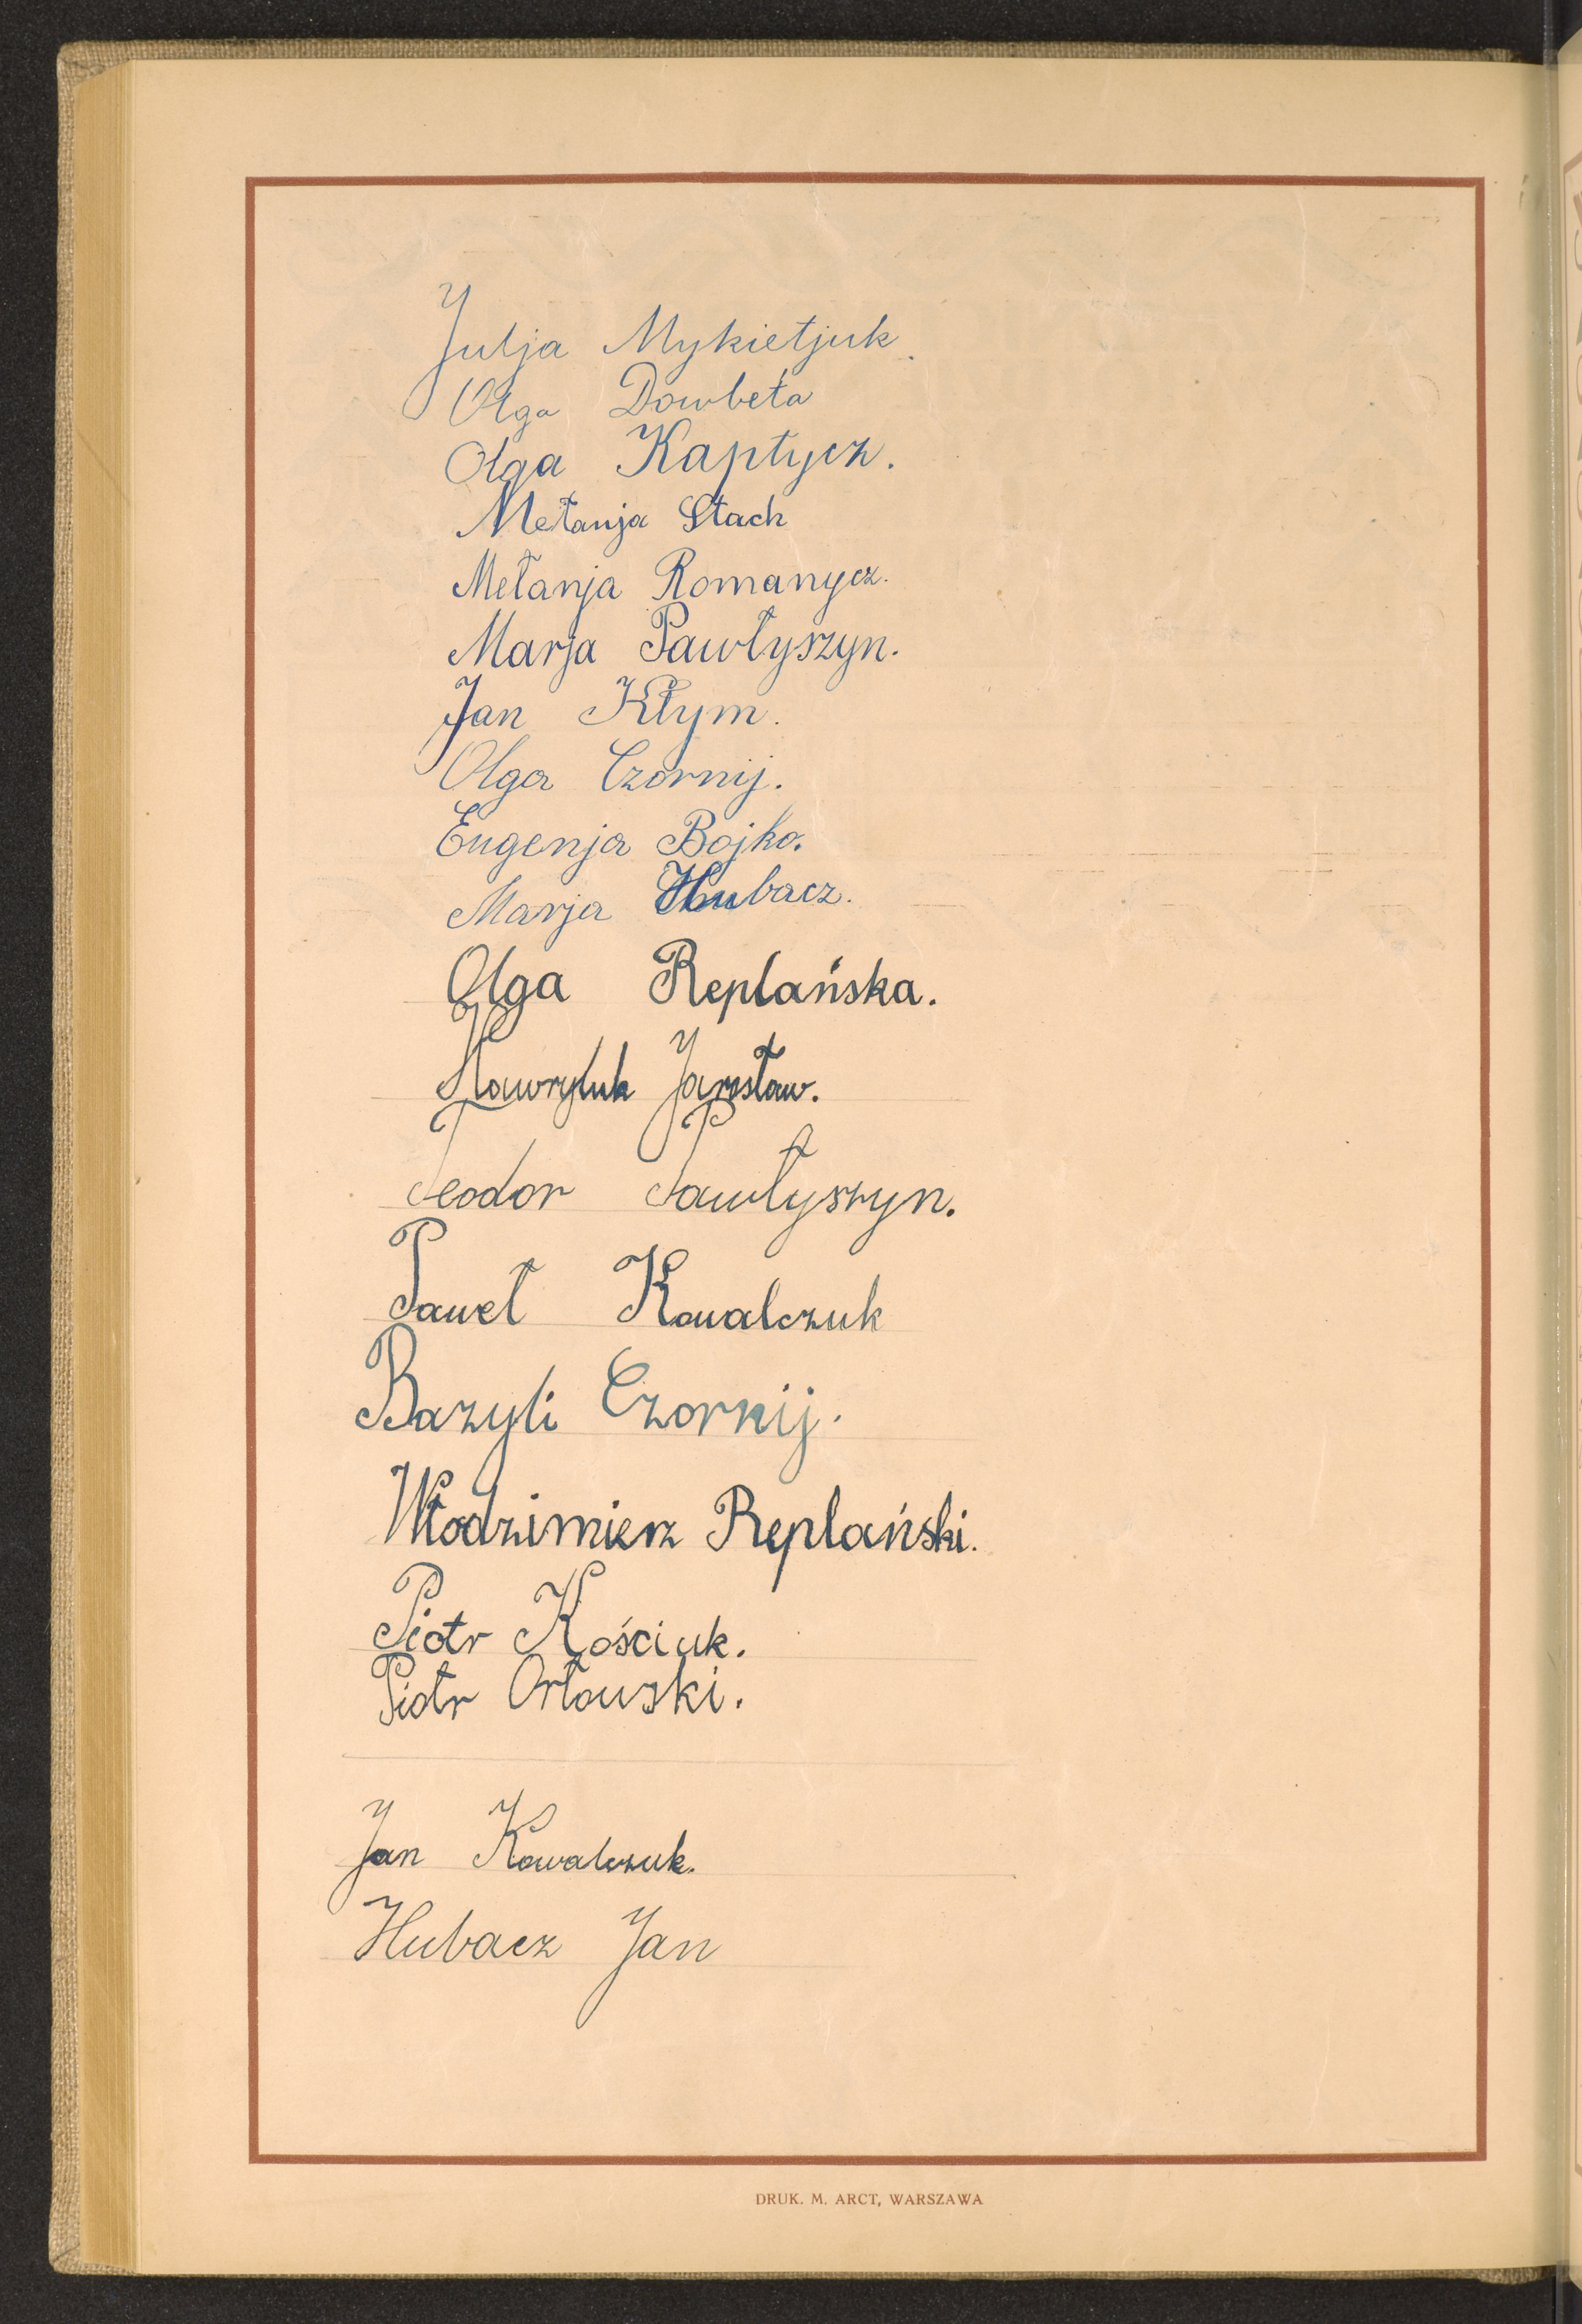 Julja Mykietjuk.
Olga Dowbeta
Olga Kaptycz.
Metanja Stach
Mełanja Romanycz.
Marja Pawłyszyn.
Jan Kłym.
Olga Czornij.
Eugenja Bojko.
Marja Hubacz.
Olga Replańska.
Hawryluk Jarosław.
Teodor Pawłyszyn.
Paweł Kowalczuk
Bazyli Czornij.
Włodzimierz Replański.
Piotr Kościuk.
Piotr Orłowski.
Jan Kowalczuk.
Hubacz Jan
DRUK. M. ARCT, WARSZAWA